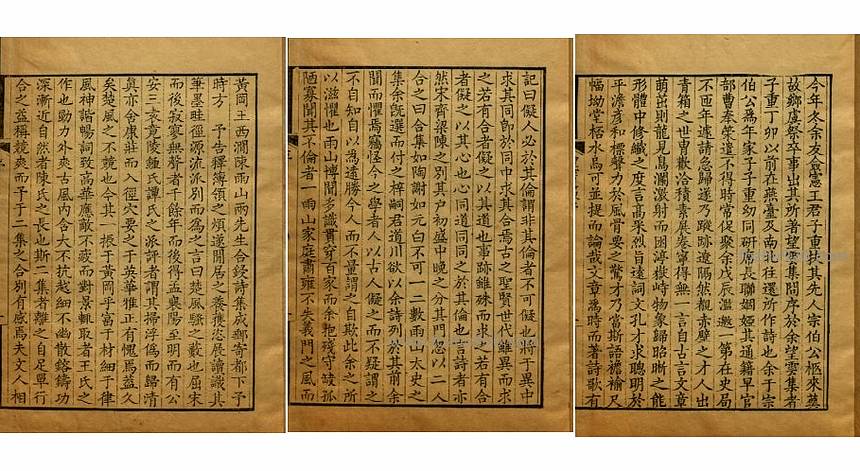 黃岡王西澗陳雨山兩先生合錢詩集成郵寄都下予
時方予告釋簿領之煩遂閒居之養獲恣展讀識其
筆墨畦徑源流派別而為之言曰楚風騷之藪也屈宋
而後寂寥無聲者千餘年而後得孟襄陽至明而有公
安三袁竟陵鍾氏譚氏之派評者謂其掃浮偽而歸清
真亦舍康莊而入徑穴要之于英華雅正有愧焉蓋久
矣楚風之不競也今其一振于黃岡乎富于材細于律
風神諧暢詞致高華應敵不疲而對景輒取者王氏之
作也勁力外爽古風內含大不抗越細不幽散鎔鑄功
深漸近自然者陳氏之長也斯二集者離之自足單行
合之益稱競爽而予于二集之合別有感焉夫文人相
記曰儗人必於其倫謂非其倫者不可儗也將于異中
求其同即於同中求其合焉古之聖賢世代雖異而求
之若有合者儗之以其道也事跡雖殊而求之若有合
者儗之以其心也心同道同之於其倫也言詩者亦
然宋齊梁陳之別其戶初盛中晚之分其門忽以二人
合之曰合集如陶謝如元白不可一二數雨山太史之
集余既選而付之梓嗣君道川欲以余詩列於其前余
聞而懼焉竊怪今之學者人以古人儗之而不疑謂之
不自知自以為遠勝今人而不量謂之自欺此余之所
以滋懼也雨山博聞多識貫穿百家而余抱殘守缺孤
陋寡聞其不倫者一雨山家庭肅雍不失義門之風而
今年冬余友會憲王君子重以其先人宗伯公柩來葬
故鄉虞祭卒事出其所著望雲集問序於余望雲集者
子重丁卯以前在燕臺及南北往還所作詩也余于宗
伯公為年家子子重幼同研席長聯姻婭其通籍早官
部曹奉榮遣不得時常促聚余戊辰濫邀一第在史局
不匝年遽請急歸遂乃蹤跡遼隔然覩赤壁之才人出
青箱之世冑歡洽積素展卷寧得無一言自古言文章
萌出則龍見鳥瀾激射而困渟嶽峙物象歸昭晰之能
形體中修纖之度言高釆烈旨遠詞文孔才求聰明於
平澹彦和標聲力於風骨要之驚才乃當斯語襜褕尺
幅坳堂杯水烏可並提而論哉文章為時而著詩歌有